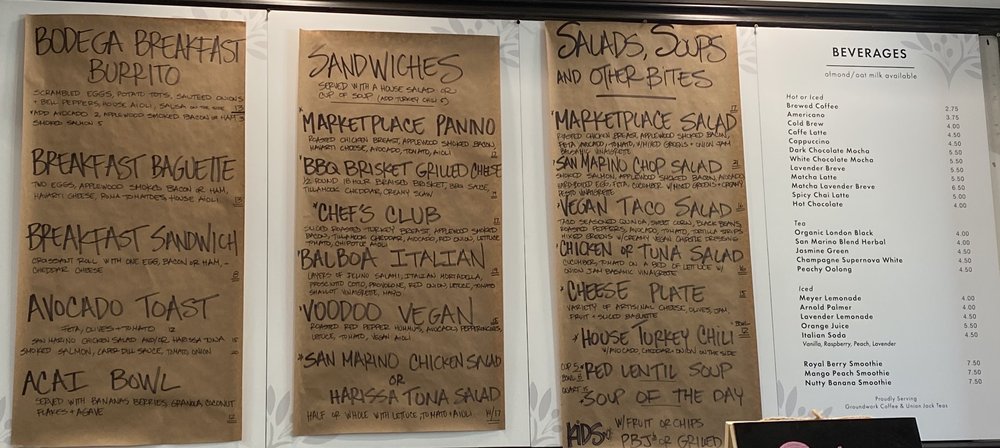 BODEGA BREAKFAST
BURRITO
SCRAMBLED EGGS, POTATO TOTS, SAUTEED ONIONS
+ BELL PEPPERS, HOUSE AIOLI, SALSA ON THE SIDE 13
+ADD AVOCADO 2, APPLEWOOD SMOKED BACON OR HAM 3
SMOKED SALMON 5
BREAKFAST BAGUETTE
TWO EGGS, APPLEWOOD SMOKED BACON OR HAM,
HAVARTI CHEESE, ROMA TOMATOES, HOUSE AIOLI 13
BREAKFAST SANDWICH
CROISSANT ROLL WITH ONE EGG, BACON OR HAM, +
CHEDDAR CHEESE 8
AVOCADO TOAST
FETA, OLIVES + TOMATO 12
SAN MARINO CHICKEN SALAD AND/OR HARISSA TUNA 15
SMOKED SALMON, CAPER DILL SAUCE, TOMATO, ONION 20
ACAI BOWL
SERVED WITH BANANAS, BERRIES, GRANOLA, COCONUT
FLAKES + AGAVE 12
SANDWICHES
SERVED WITH A HOUSE SALAD OR
CUP OF SOUP (ADD TURKEY CHILI 2)
*MARKETPLACE PANINO
ROASTED CHICKEN BREAST, APPLEWOOD SMOKED BACON,
HAVARTI CHEESE, AVOCADO, TOMATO, AIOLI 17
*BBQ BRISKET GRILLED CHEESE
1/2 ROUND 18 HOUR BRAISED BRISKET, BBQ SAUCE,
TILLAMOOK CHEDDAR, CREAMY SLAW
*CHEF'S CLUB 17
SLICED ROASTED TURKEY BREAST, APPLEWOOD SMOKED
BACON, TILLAMOOK CHEDDAR, AVOCADO, RED ONION, LETTUCE
TOMATO, CHIPOTLE AIOLI
BALBOA ITALIAN
LAYERS OF SALAMI, ITALIAN MORTADELLA,
PROSCIUTTO COTTO, PROVOLONE, RED ONION, LETTUCE, TOMATO
SHALLOT VINAIGRETTE, MAYO
VOODOO VEGAN
ROASTED RED PEPPER HUMMUS, AVOCADO, PEPPERONCINI,
LETTUCE, TOMATO, VEGAN AIOLI
*SAN MARINO CHICKEN SALAD
OR
HARISSA TUNA SALAD
HALF OR WHOLE WITH LETTUCE, TOMATO + AIOLI 14/17
SALADS, SOUPS
AND OTHER BITES
17
*MARKETPLACE SALAD
ROASTED CHICKEN BREAST, APPLEWOOD SMOKED BACON,
FETA, AVOCADO, TOMATO, W/MIXED GREENS + ONION JAM
BALSAMIC VINAIGRETTE
21
*SAN MARINO CHOP SALAD
SMOKED SALMON, APPLEWOOD SMOKED BACON, AVOCADO,
HARD BOILED EGG, FETA, CUCUMBER W/MIXED GREENS + CREAMY
PESTO VINAIGRETTE
*VEGAN TACO SALAD 16
TACO SEASONED QUINOA, SWEET CORN, BLACK BEANS,
ROASTED PEPPERS, AVOCADO, TOMATO, TORTILLA STRIPS
MIXED GREENS W/CREAMY VEGAN CHIPOTLE DRESSING
*CHICKEN OR TUNA SALAD
CUCUMBER, TOMATO ON A BED OF LETTUCE W/
ONION JAM BALSAMIC VINAIGRETTE 16
*CHEESE PLATE 15
VARIETY OF ARTISANAL CHEESE, OLIVES, JAM
FRUIT + SLICED BAGUETTE
*HOUSE TURKEY CHILI BOWL 12
W/AVOCADO, CHEDDAR + ONION ON THE SIDE
CUP 5 *RED LENTIL SOUP
BOWL 8
QUART 15 *SOUP OF THE DAY
W/FRUIT OR CHIPS
KIDS PBJ OR GRILLED
BEVERAGES
almond/oat milk available
Hot or Iced
Brewed Coffee 2.75
Americano 3.75
Cold Brew 4.00
Caffe Latte 4.50
Cappuccino 4.50
Dark Chocolate Mocha 5.50
White Chocolate Mocha 5.50
Lavender Breve 5.50
Matcha Latte 5.50
Matcha Lavender Breve 6.50
Spicy Chai Latte 5.50
Hot Chocolate 4.00
Tea
Organic London Black 4.00
San Marino Blend Herbal 4.00
Jasmine Green 4.50
Champagne Supernova White 4.50
Peachy Oolong 4.50
Iced
Meyer Lemonade 4.00
Arnold Palmer 4.00
Lavender Lemonade 4.50
Orange Juice 5.50
Italian Soda 4.50
Vanilla, Raspberry, Peach, Lavender
Royal Berry Smoothie 7.50
Mango Peach Smoothie 7.50
Nutty Banana Smoothie 7.50
Proudly Serving
Groundwork Coffee & Union Jack Teas